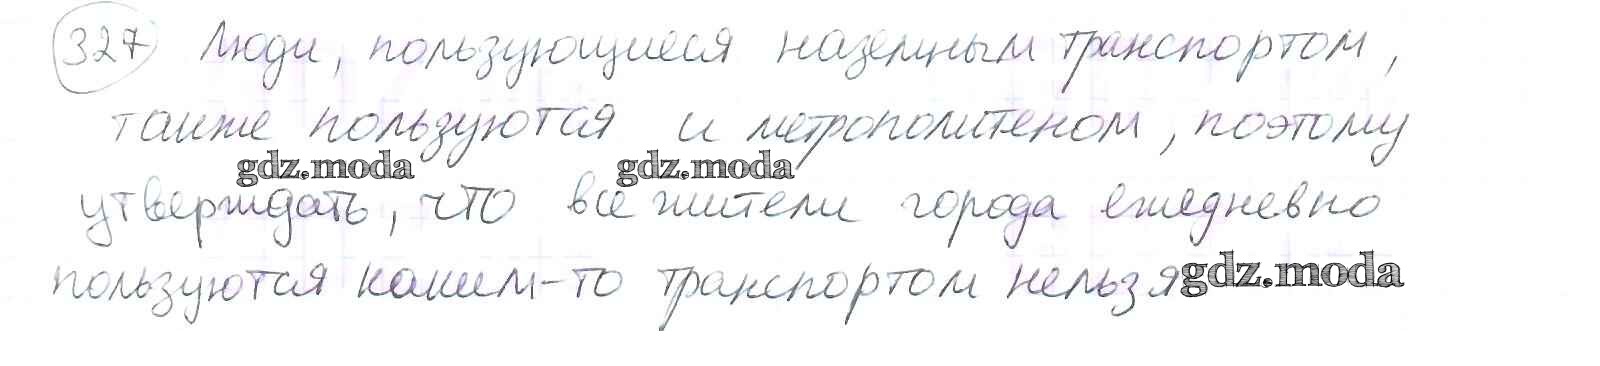 327 Люди, пользующиеся наземным транспортом,
также пользуются и метрополитеном, поэтому
gdz.moda gdz.moda
утверждать, что все жители города ежедневно
пользуются каким-то транспортом нельзя gdz.moda